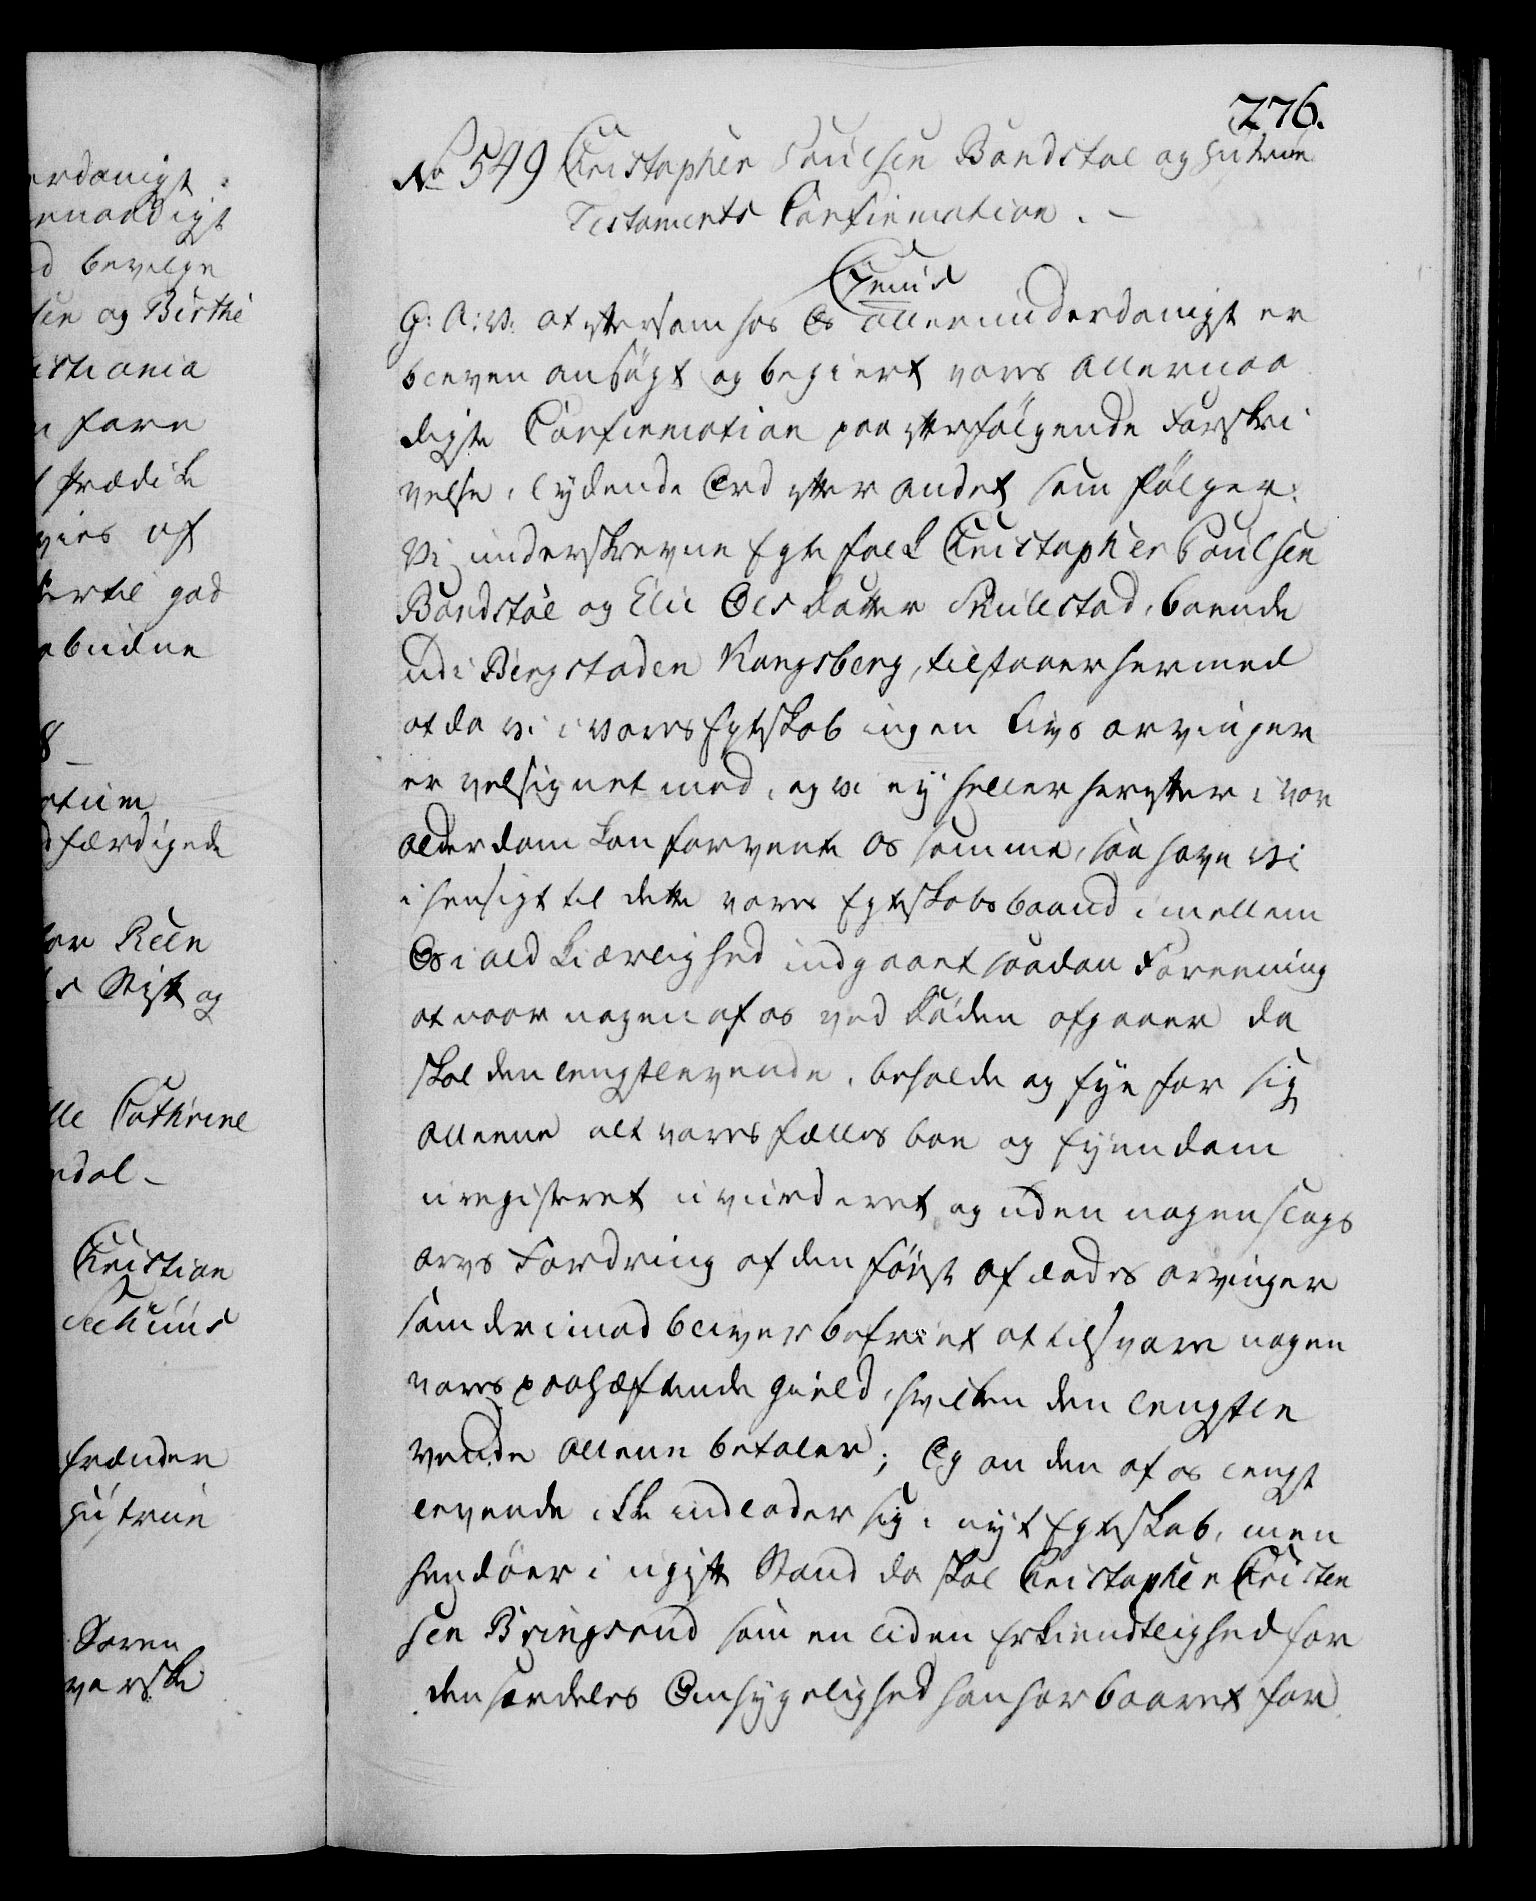 276.
No 549 Christopher Poulsen Bandstøl og Hustrues
Testaments Confirmation. –
Grauis
G: A: V: at eftersom hos Os allerunderdanigst er
bleven ansøgt og begiert vores allernaa
digste Confirmation paa efterfølgende Forskri
velse, lydende Ord efter andet som følger:
Vi underskrevne Egtefolk Christopher Poulsen
Bandstøl og Elie Olsdatter Skulestad, boende
udi Bergstaden Kongsberg, tilstaaer hermed
at da vi i vores Egteskab ingen Livs arvinger
er velsignet med, og vi ey heller herefter i vor
alderdom kan forvente os samme, saa have vi
i hensigt til dette vores Egteskabs baand imellem
Os i ald Kiærlighed indgaaet saadan Foreening
at naar nogen af os ved Døden afgaaer da
skal den lengstlevende, beholde og Eye for sig
alleene alt vores fælles boe og Eyendom
uregistreret uvurderet og uden nogen slags
arvs Fordring af den først afdødes arvinger
som derimod bliver befriet at tilsvare nogen
vores paahæftende Gield, hvilken den lengstle
vende alleene betaler; Og om den af os lengst
levende ikke indlader sig i nyt Egteskab, men
hendøer i ugift Stand da skal Christopher Christen
sen Bringsrud som en liden Erkiendtlighed for
den særdeles Omhyggelighed han har baaret for
erdanigst
ernaadigst
d bevilge
sen og Birthe
istiania
n fare
t Prædike
vies af
hertil god
ebudne
8 –
færdigede
og
lle Cathrine
edal –
Christian
frænder
Hustrue
Søren